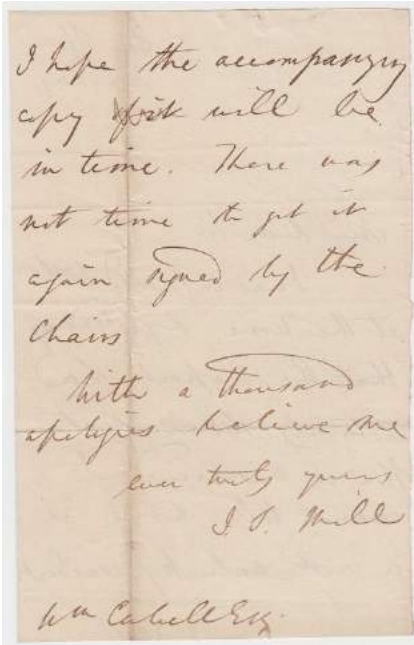 I hope the accompanying
copy of it will be
in time. There was
not time to get it
again signed by the
Chairs
With a thousand
apologies believe me
ever truly yours
J S. Mill
Wm Cabell Esq.